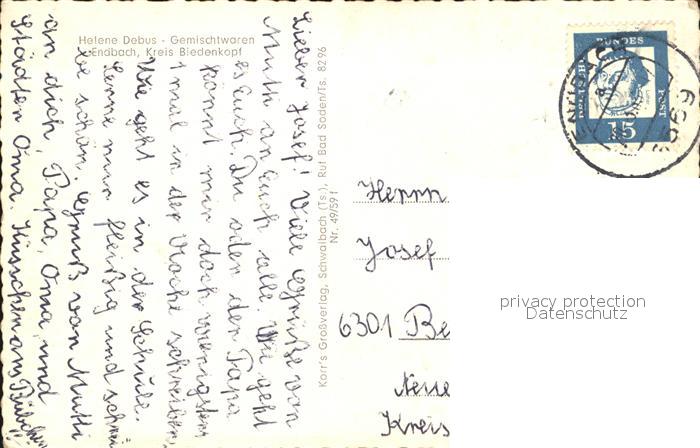 Helene Debus - Gemischtwaren
Endbach, Kreis Biedenkopf
Lieber Josef! Viele Grüße von
Mutti an Euch alle. Wie geht
es Euch. Du oder der Papa
könnt mir doch wenigstens
1 mal in der Woche schreiben
Wie geht es in der Schule.
Lerne nur fleißig und schrei
be schön. Gruß von Mutti
an dich, Papa, Oma, und
Städten Oma. Küsschen am
Korr's Großverlag, Schwalbach (Ts.), Ruf Bad Soden/Ts. 8296
Nr. 49/59 f
DEUTSCHE
BUNDES
POST
15
3569
Herrn
Josef
6301 Be
Neue
Kreis
privacy protection
Datenschutz